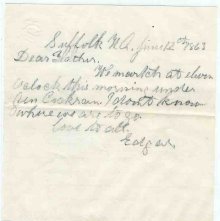 Suffolk V.A. June 12th 1863
Dear Father.
We march at eleven
oclock this morning under
Gen Corkran I dont know
where we are to go.
love to all
Edgar